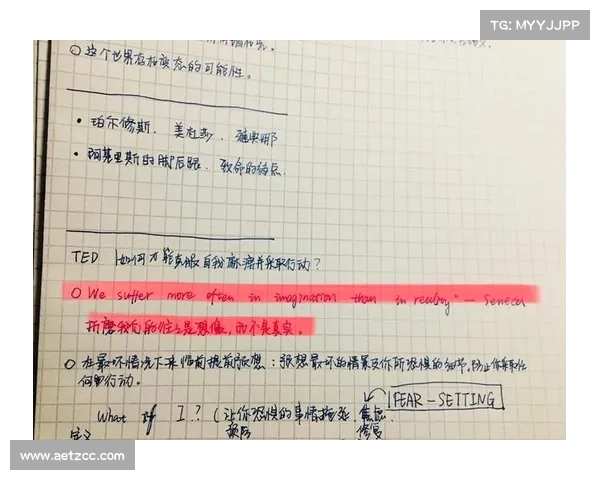 TG: MYYJJPP
○ 这个世界存在变态的可能性。
• 珀尔修斯、美杜莎、雅典娜
• 阿基里斯的脚后跟、致命的弱点.
TED 如何才能克服自我麻痹并采取行动?
○ We suffer more often in imagination than in reality" — Seneca
折磨我们的往往是想像,而不是真实。
○ 在最坏情况下来临前提前预想:预想最坏的情景及你所恐惧的细节,防止你采取任
何行动。
FEAR-SETTING
What if I? (让你恐惧的事情
定义 预防 修复
www.aetzcc.com